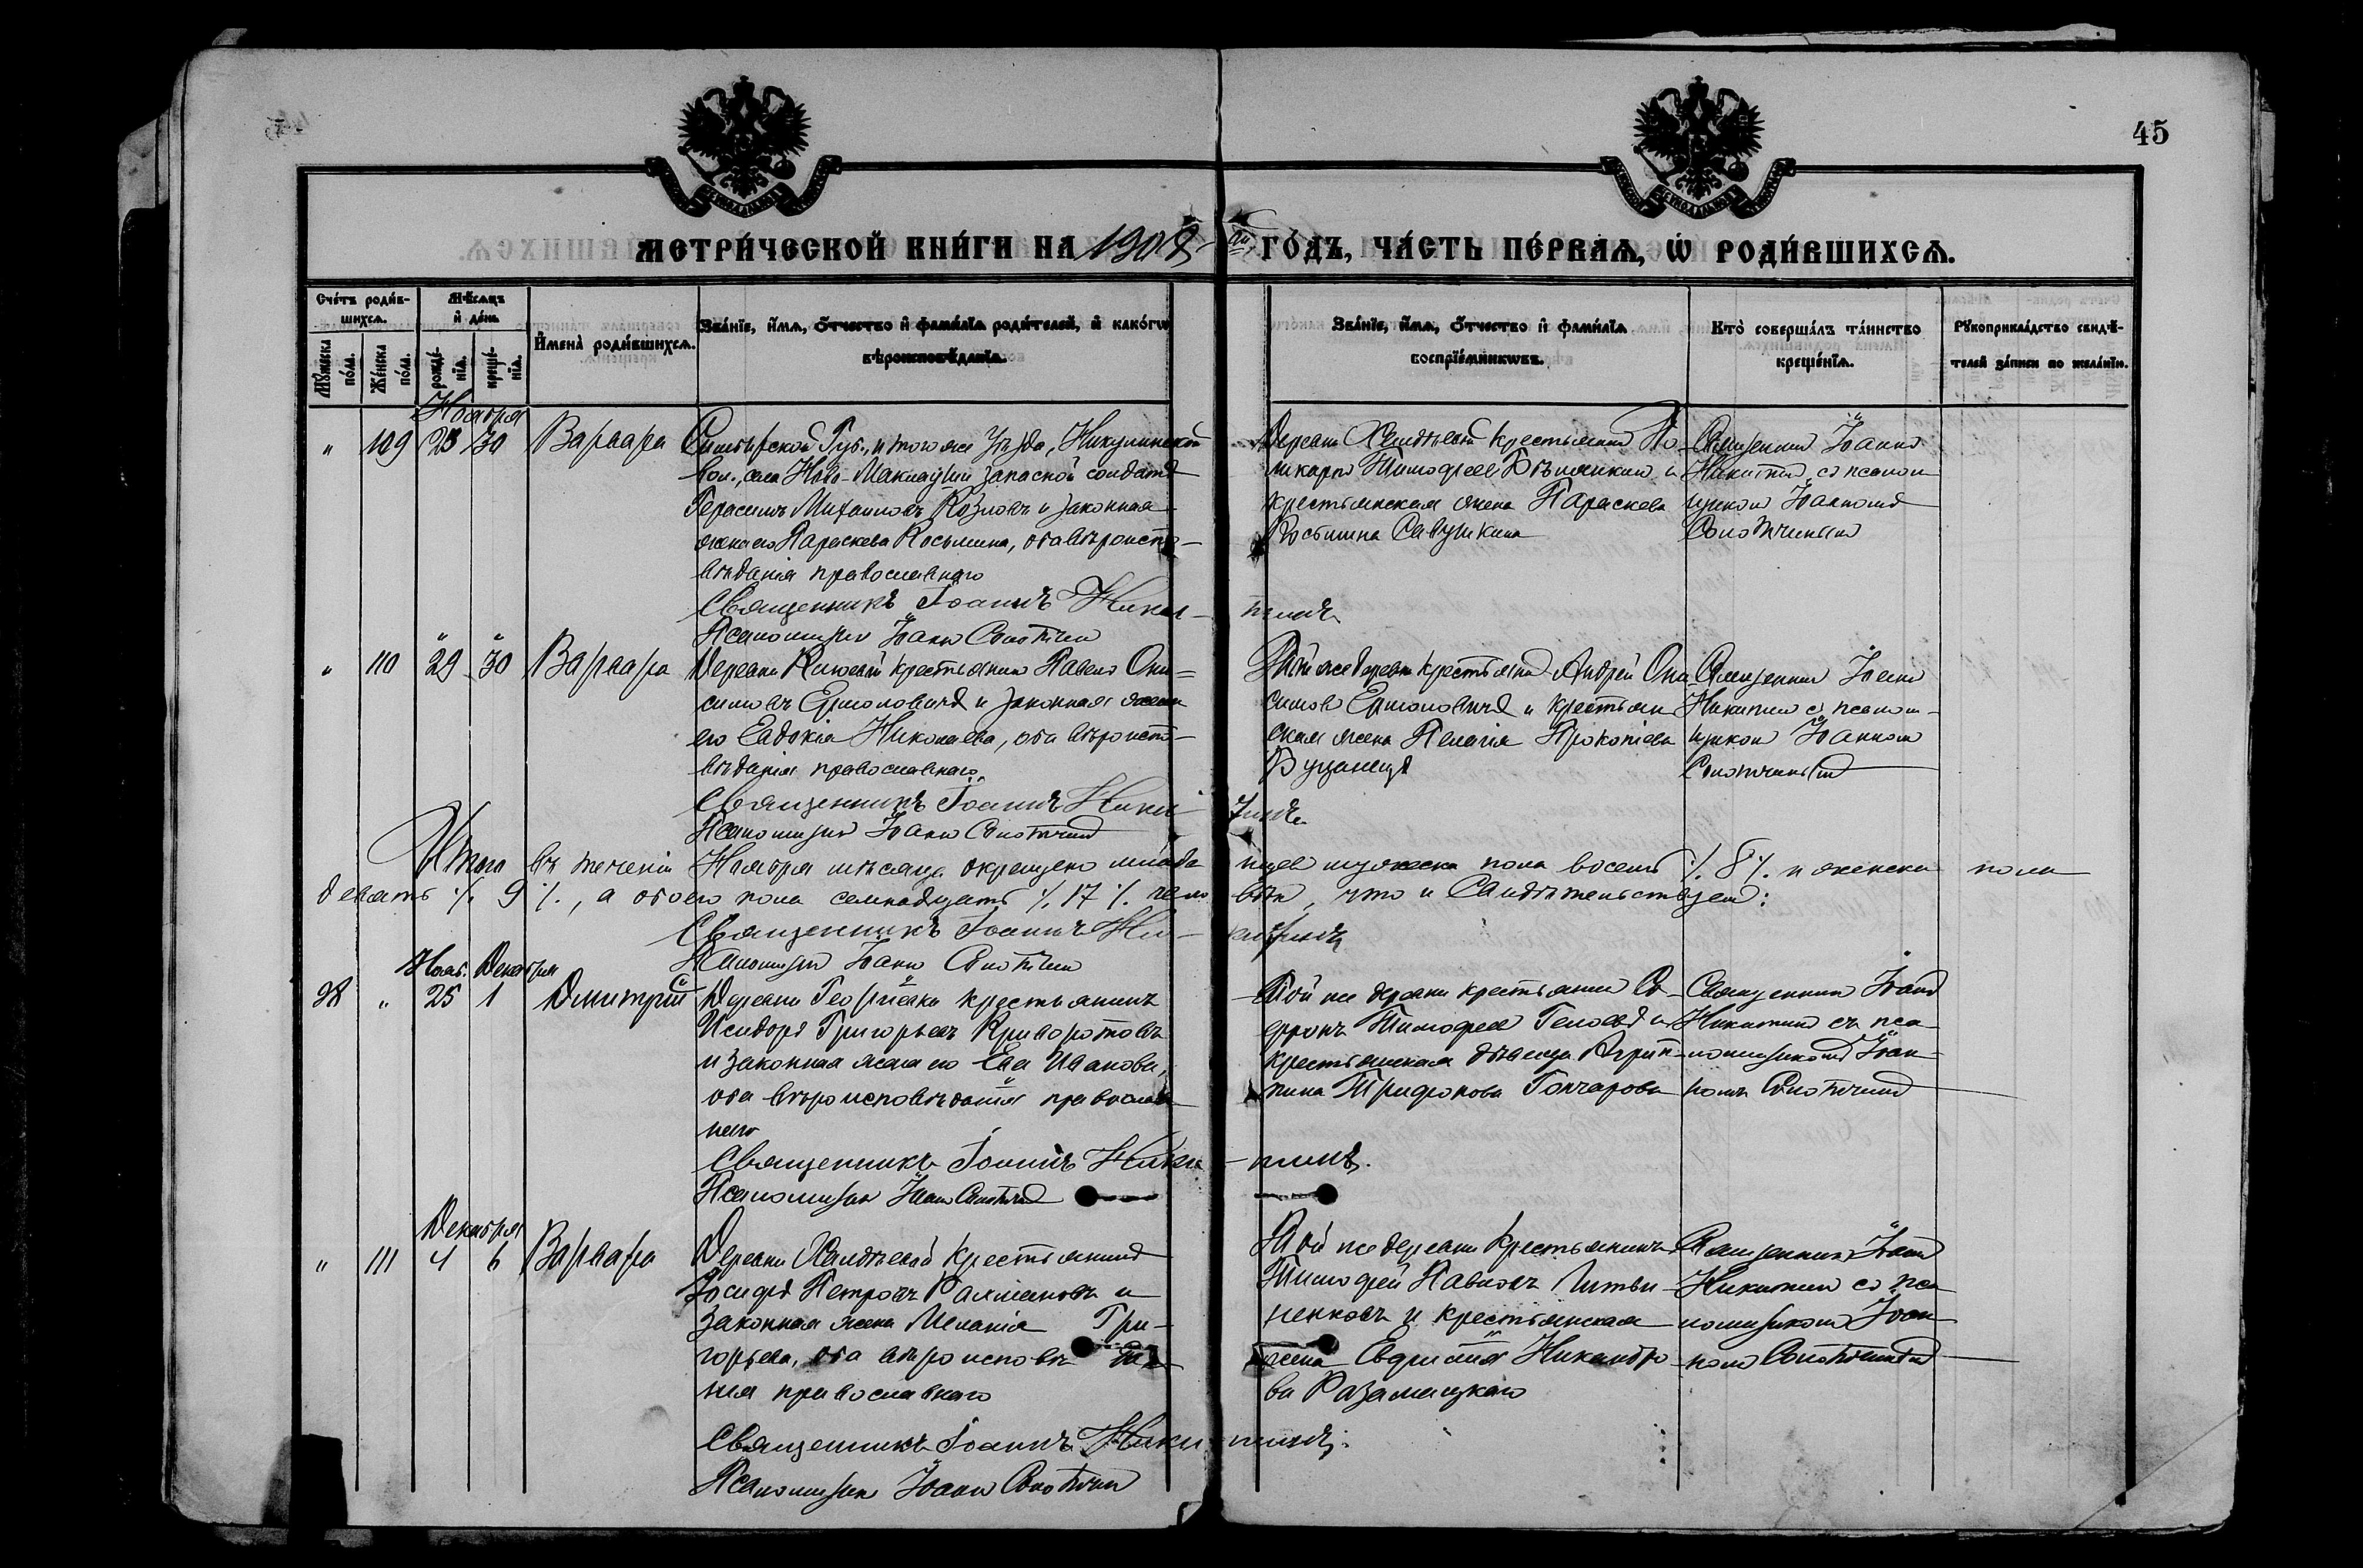 45
МЕТРИЧЕСКОЙ КНИГИ НА 1908 й ГОДЪ, ЧАСТЬ ПЕРВАЯ, Ѡ РОДИВШИХСЯ.
Счетъ родив-
шихся.
Мужеска пола.
Женска пола.
Мѣсяцъ
и день
рожде-
нія.
креще-
нія.
Имена родившихся.
Званіе, имя, отчество и фамилія родителей, и какогѡ
вѣроисповѣданія.
Званіе, имя, отчество и фамилія
воспріемникѡвъ.
Кто совершалъ таинство
крещенія.
Рукоприкладство свидѣ-
телей записи по желанію.
Ноября
" 109 23 30 Варвара
Симбирской Губ., и того же Уѣзда, Никулинской
вол., села Ново- запасной солдатъ
Герасимъ Михаиловъ Козловъ и законная
жена его Параскева Косьмина, оба вѣроиспо-
вѣданія православнаго
Священникъ Іоаннъ Ники-тинъ
Псаломщикъ Іоаннъ
Деревни крестьянинъ По-
ликарпъ Тимофеевъ и
крестьянская жена Параскева
Косьмина Савушкина
Священникъ Іоаннъ
Никитинъ съ псалом-
щикомъ Іоанномъ
" 110 29 30 Варвара
Деревни крестьянинъ Павелъ Они-
симовъ Ермоловичъ и законная жена
его Евдокія Николаева, оба вѣроиспо-
вѣданія православнаго
Священникъ Іоаннъ Ники-тинъ
Псаломщикъ Іоаннъ
Той же деревни крестьянинъ Андрей Они-
симовъ Ермоловичъ и крестьян-
ская жена Пелагія Прокопіева
Священникъ Іоаннъ
Никитинъ съ псалом-
щикомъ Іоанномъ
Итого въ теченіи Ноября мѣсяца окрещено младенцев мужеска пола восемь ./. 8 ./. и женска пола
девять ./. 9 ./., а обоего пола семнадцать ./. 17 ./. человѣкъ, что и свидѣтельствуемъ:
Священникъ Іоаннъ Ни-китинъ
Псаломщикъ Іоаннъ
Нояб. Декабря
38 " 25 1 Димитрій
Деревни Георгіевки крестьянинъ
Исидоръ Григорьевъ Криворотовъ
и законная жена его Ева Иванова,
оба вѣроисповѣданія православ-
наго
Священникъ Іоаннъ Ники-тинъ.
Псаломщикъ Іоаннъ
Той же деревни крестьянинъ Со-
фронъ Тимофеевъ и
крестьянская дѣвица Агрип-
пина Трифонова Гончарова
Священникъ Іоаннъ
Никитинъ съ пса-
ломщикомъ Іоан-
номъ
Декабря
" 111 4 6 Варвара
Деревни крестьянинъ
Іосифъ Петровъ Рахмановъ и
законная жена Меланія Гри-
горьева, оба вѣроисповѣда-
нія православнаго
Священникъ Іоаннъ Ники-тинъ.
Псаломщикъ Іоаннъ
Той же деревни крестьянинъ
Тимофей Павловъ Литви-
ненковъ и крестьянская
жена Никандро-
ва
Священникъ Іоаннъ
Никитинъ съ пса-
ломщикомъ Іоан-
номъ